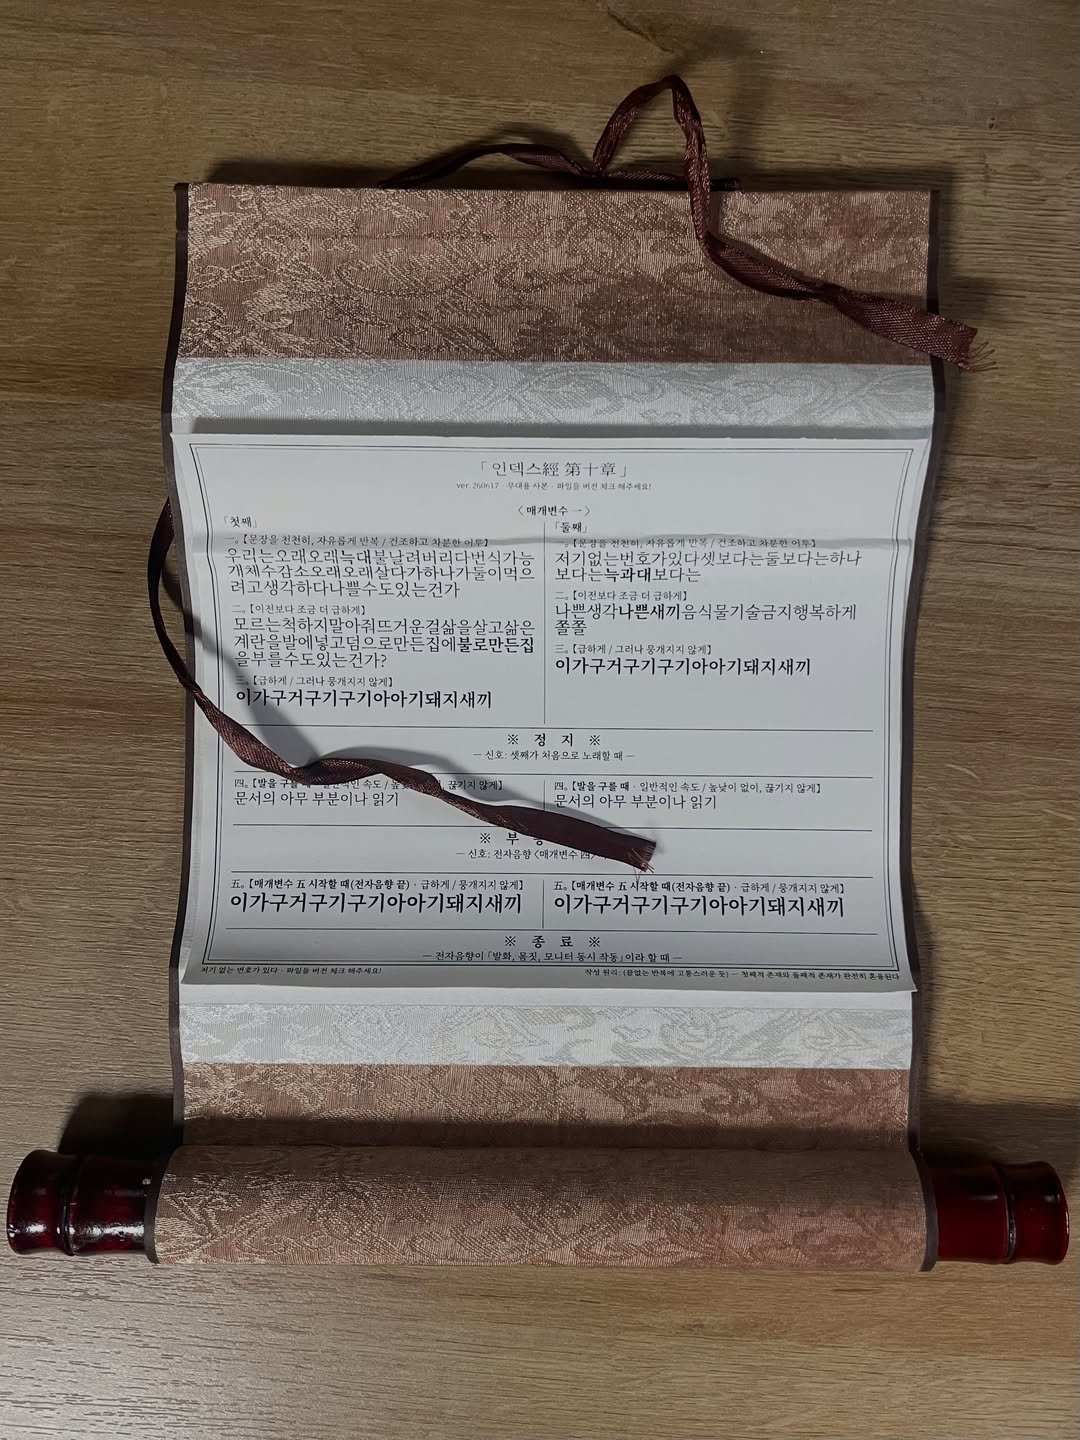 「인덱스經 第十章」
ver. 260617 · 무대용 사본 · 파일들 버전 체크 해주세요!
〈매개변수 一〉
「첫째」
一。【문장을 천천히, 자유롭게 반복 / 건조하고 차분한 어투】
우리는오래오래늑대불날려버리다번식가능
개체수감소오래오래살다가하나가둘이먹으
려고생각하다나쁠수도있는건가
二。【이전보다 조금 더 급하게】
모르는척하지말아줘뜨거운걸삶을살고삶은
계란을발에넣고덤으로만든집에불로만든집
을부를수도있는건가?
三。【급하게 / 그러나 뭉개지지 않게】
이가구거구기구기아아기돼지새끼
「둘째」
一。【문장을 천천히, 자유롭게 반복 / 건조하고 차분한 어투】
저기없는번호가있다셋보다는둘보다는하나
보다는늑과대보다는
二。【이전보다 조금 더 급하게】
나쁜생각나쁜새끼음식물기술금지행복하게
쫄쫄
三。【급하게 / 그러나 뭉개지지 않게】
이가구거구기구기아아기돼지새끼
※ 정 지 ※
— 신호: 셋째가 처음으로 노래할 때 —
四。【발을 구를 때 · 일반적인 속도 / 높낮이 끊기지 않게】
문서의 아무 부분이나 읽기
四。【발을 구를 때 · 일반적인 속도 / 높낮이 없이, 끊기지 않게】
문서의 아무 부분이나 읽기
※ 부
— 신호: 전자음향 〈매개변수 四〉
五。【매개변수 五 시작할 때(전자음향 끝) · 급하게 / 뭉개지지 않게】
이가구거구기구기아아기돼지새끼
五。【매개변수 五 시작할 때(전자음향 끝) · 급하게 / 뭉개지지 않게】
이가구거구기구기아아기돼지새끼
※ 종 료 ※
— 전자음향이 「발화, 몸짓, 모니터 동시 작동」이라 할 때 —
저기 없는 번호가 있다 · 파일들 버전 체크 해주세요!
작성 원리: (끝없는 반복에 고통스러운 듯) — 첫째적 존재와 둘째적 존재가 완전히 혼용된다